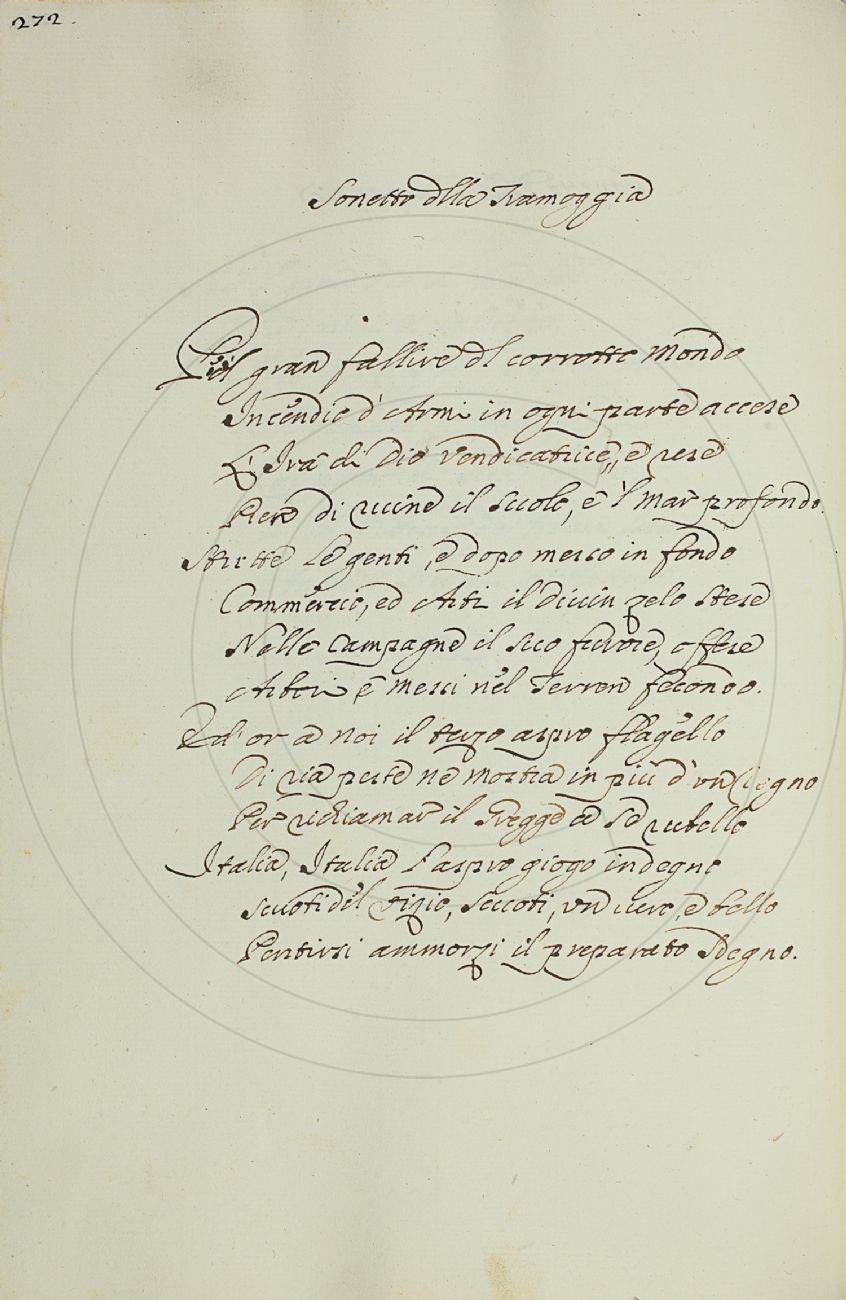 272.
Sonetto della Ramoggia
Pe'l gran fallire del corrotto Mondo
Incendio d'Armi in ogni parte accese
L'Ira di Dio Vendicatrice, e rese
Piene di ruine il suolo, e 'l Mar profondo.
Strette le genti, e dopo messo in fondo
Commercio, ed Arti il Divin zelo stese
Nelle Campagne il suo furore, offese
Arbori, e Messi nel Terren fecondo.
Ed' or a noi il terzo aspro flagello
Di ria peste ne mostra in più d'un Segno
Per richiamar il Gregge a Se rubello
Italia, Italia l'aspro giogo indegno
Scuoti del Vizio, Scuoti, un vero, e bello
Pentirsi ammorzi il preparato Sdegno.